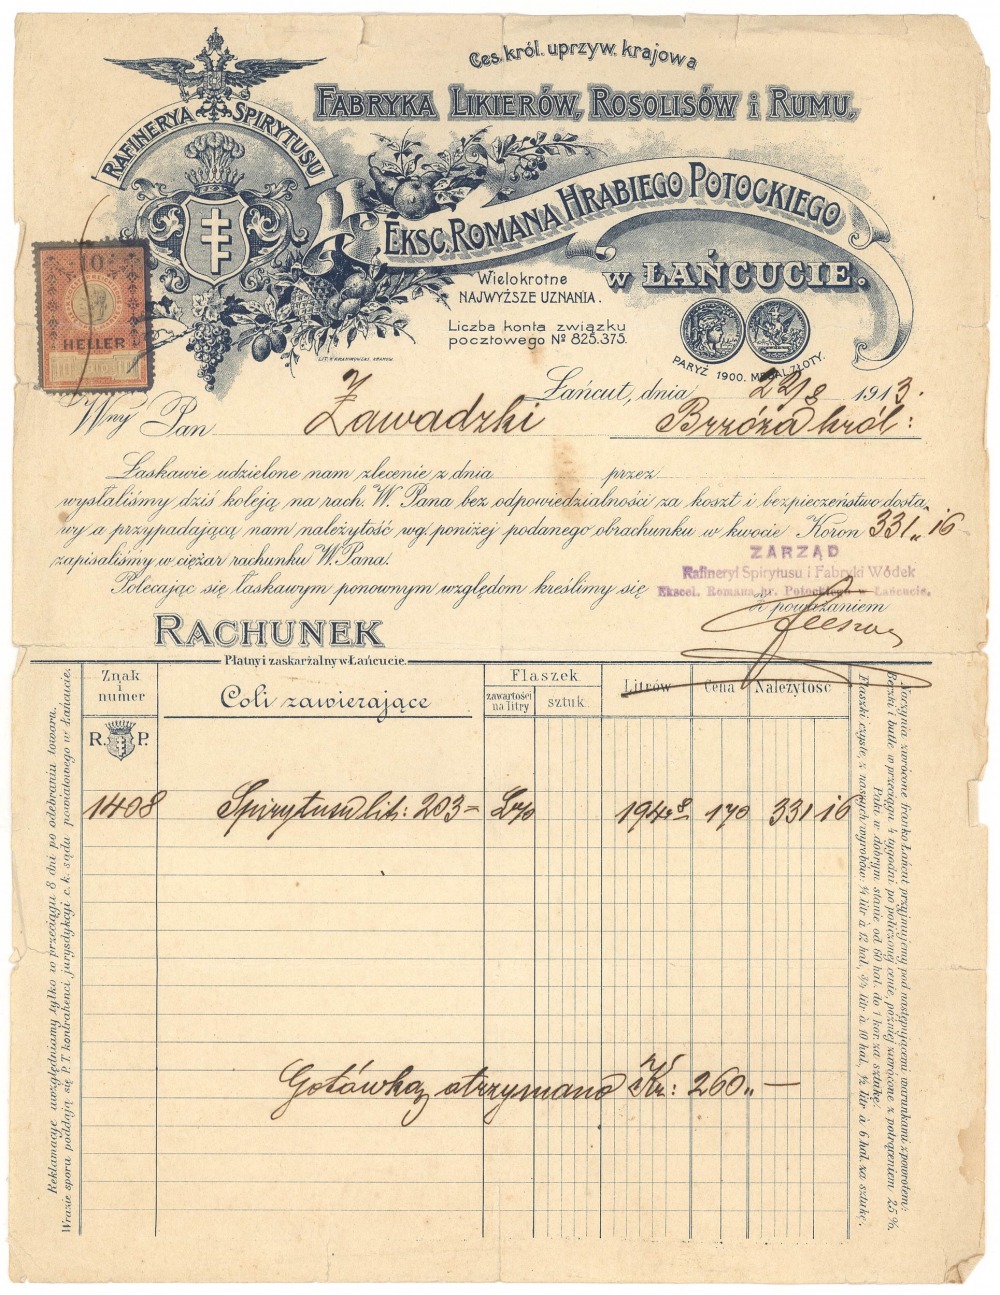 Ces. król. uprzyw. krajowa
FABRYKA LIKIERÓW, ROSOLISÓW i RUMU,
RAFINERYA SPIRYTUSU
EKSC. ROMANA HRABIEGO POTOCKIEGO
w ŁAŃCUCIE.
Wielokrotne
NAJWYŻSZE UZNANIA.
Liczba konta związku
pocztowego № 825.375.
PARYŻ 1900. MEDAL ZŁOTY.
10
HELLER
Łańcut, dnia 22/8 1913.
Wny Pan Zawadzki Brzóza król:
Łaskawie udzielone nam zlecenie z dnia przez
wysłaliśmy dziś koleją na rach. W. Pana bez odpowiedzialności za koszt i bezpieczeństwo dosta-
wy a przypadającą nam należytość wg. poniżej podanego obrachunku w kwocie Koron 331 „ 16
zapisaliśmy w ciężar rachunku W. Pana.
Polecając się łaskawym ponownym względom kreślimy się
z poważaniem
ZARZĄD
Rafineryi Spirytusu i Fabryki Wódek
Ekscel. Romana hr. Potockiego w Łańcucie.
RACHUNEK
Płatny i zaskarżalny w Łańcucie.
Znak i numer Coli zawierające Flaszek zawartości na litry sztuk Litrów Cena Należytość
R. P.
1408 Spirytusu lit: 203 = 194·8 170 331 16
Gotówką otrzymano Kr: 260 „ —
Reklamacye uwzględniamy tylko w przeciągu 8 dni po odebraniu towaru.
Wrazie sporu poddają się P. T. kontrahenci jurysdykcji c. k. sądu powiatowego w Łańcucie.
Naczynia zwrócone franko Łańcut przyjmujemy pod następującemi warunkami z powrotem:
Beczki i butle w przeciągu 4 tygodni po policzonej cenie, później zwrócone z potrąceniem 25%,
Paki w dobrym stanie od 60 hal. do 1 kor. za sztukę.
Flaszki czyste, z naszych wyrobów: 1/1 litr à 12 hal., 3/4 litr à 10 hal., 1/2 litr à 6 hal. za sztukę.